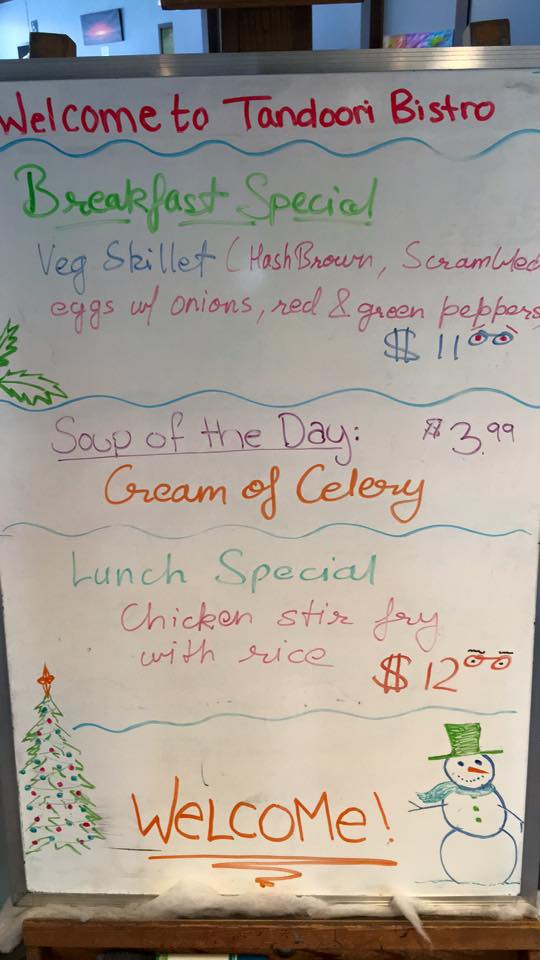 Welcome to Tandoori Bistro
Breakfast Special
Veg Skillet (HashBrown, Scrambled
eggs w/ onions, red & green peppers
$ 11 00
Soup of the Day: $3.99
Cream of Celery
Lunch Special
Chicken stir fry
with rice
$ 12 00
WELCOMe!